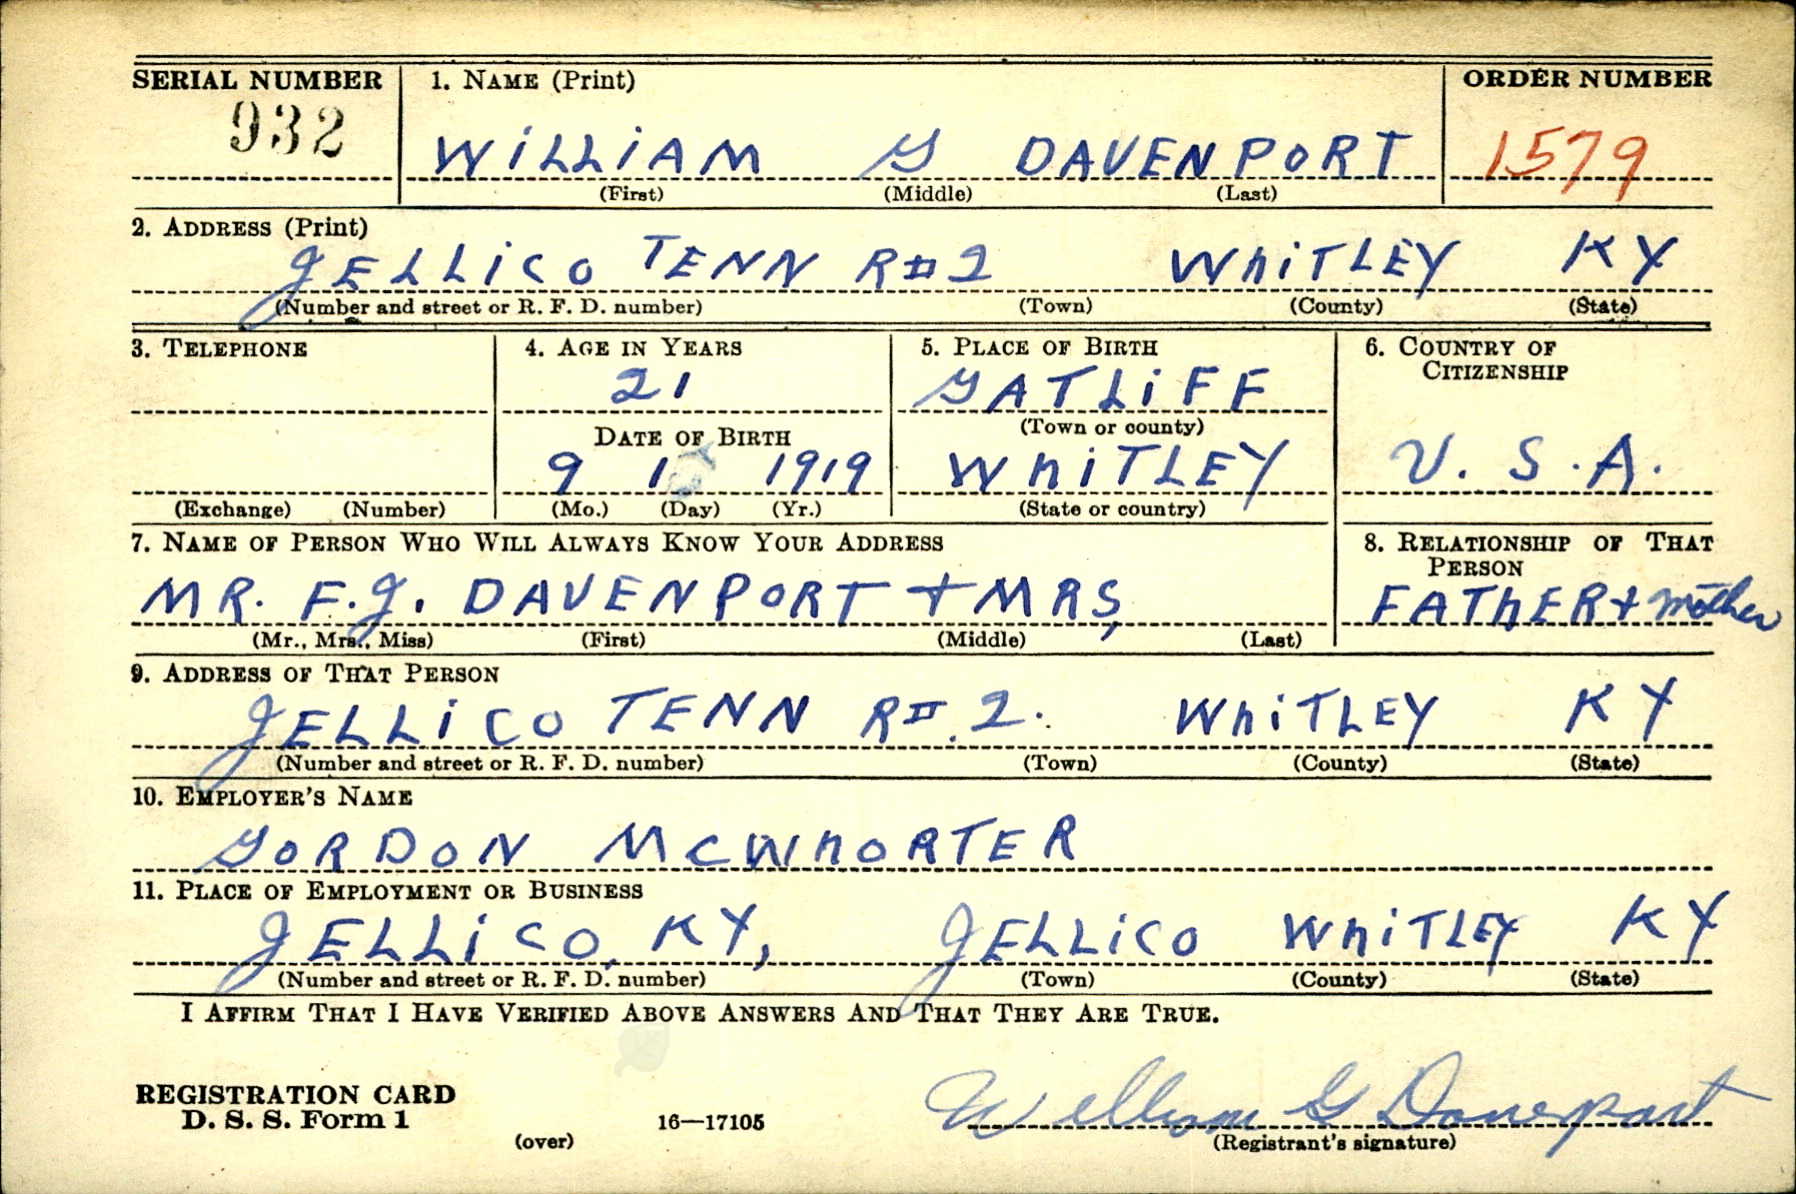 SERIAL NUMBER 1. NAME (Print) ORDER NUMBER
932 WiLLiAM G DAVENPORT 1579
(First) (Middle) (Last)
2. ADDRESS (Print)
JELLiCO TENN R#2 WhiTLEY KY
(Number and street or R. F. D. number) (Town) (County) (State)
3. TELEPHONE 4. AGE IN YEARS 5. PLACE OF BIRTH 6. COUNTRY OF CITIZENSHIP
21 GATLiFF
DATE OF BIRTH (Town or county)
9 1 1919 WhiTLEY U.S.A.
(Exchange) (Number) (Mo.) (Day) (Yr.) (State or country)
7. NAME OF PERSON WHO WILL ALWAYS KNOW YOUR ADDRESS 8. RELATIONSHIP OF THAT PERSON
MR. F.J. DAVENPORT + MRS, FAThER + mother
(Mr., Mrs., Miss) (First) (Middle) (Last)
9. ADDRESS OF THAT PERSON
JELLiCO TENN R#.2. WhiTLEY KY
(Number and street or R. F. D. number) (Town) (County) (State)
10. EMPLOYER'S NAME
GORDON MCWhORTER
11. PLACE OF EMPLOYMENT OR BUSINESS
JELLiCO, KY, JELLiCO WhiTLEY KY
(Number and street or R. F. D. number) (Town) (County) (State)
I AFFIRM THAT I HAVE VERIFIED ABOVE ANSWERS AND THAT THEY ARE TRUE.
REGISTRATION CARD
D. S. S. Form 1 16—17105 William G Davenport
(over) (Registrant's signature)